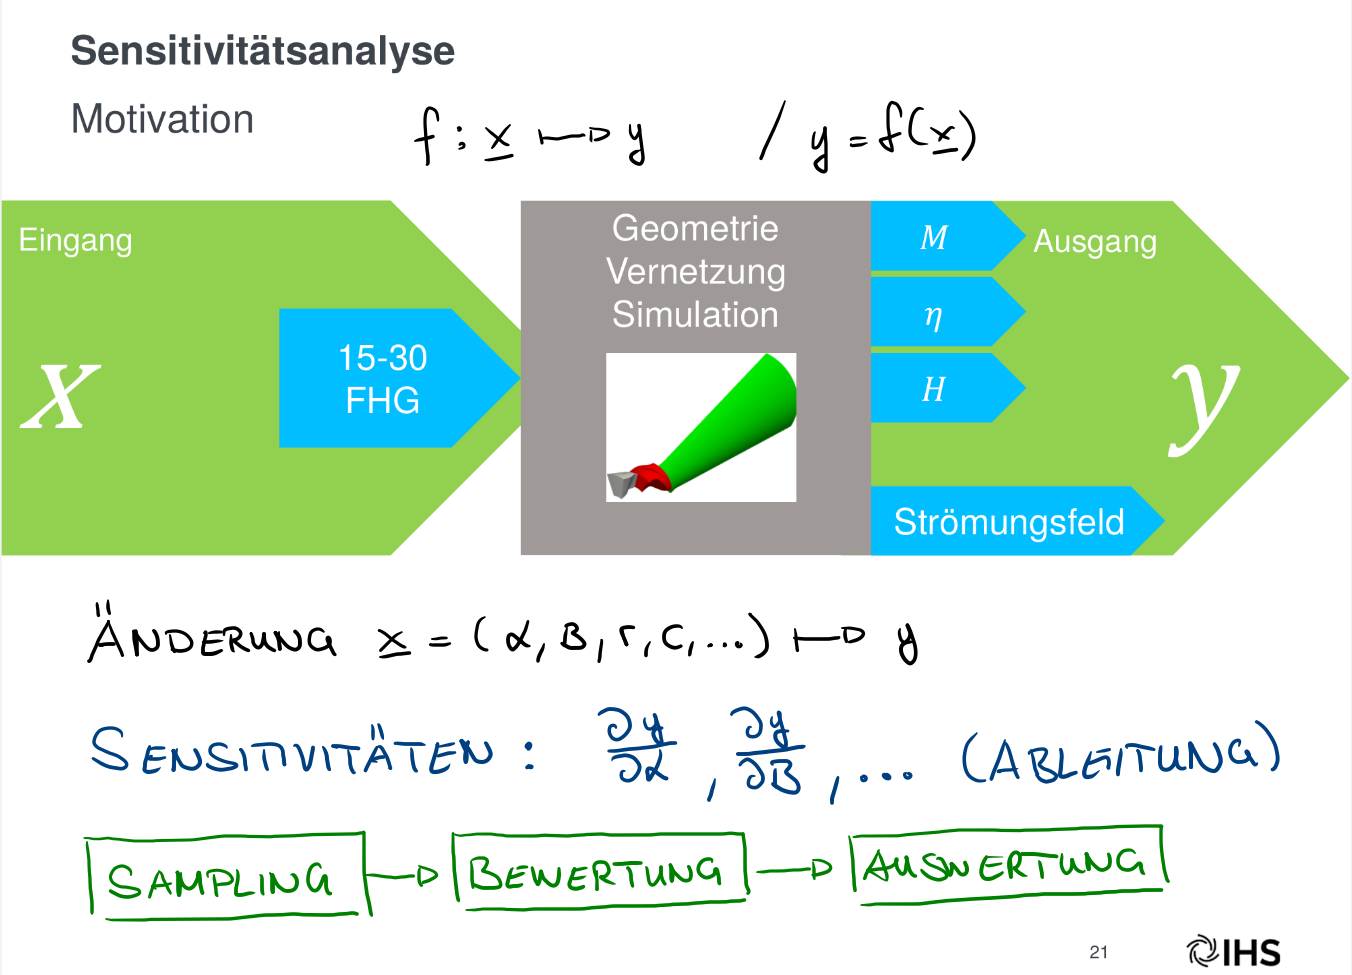 Sensitivitätsanalyse
Motivation
f : x ↦ y / y = f(x)
Eingang
x
15-30
FHG
Geometrie
Vernetzung
Simulation
M
η
H
Strömungsfeld
Ausgang
y
ÄNDERUNG x = (α, B, r, C, ...) ↦ y
SENSITIVITÄTEN : ∂y/∂α , ∂y/∂B , ... (ABLEITUNG)
SAMPLING → BEWERTUNG → AUSWERTUNG
21
IHS